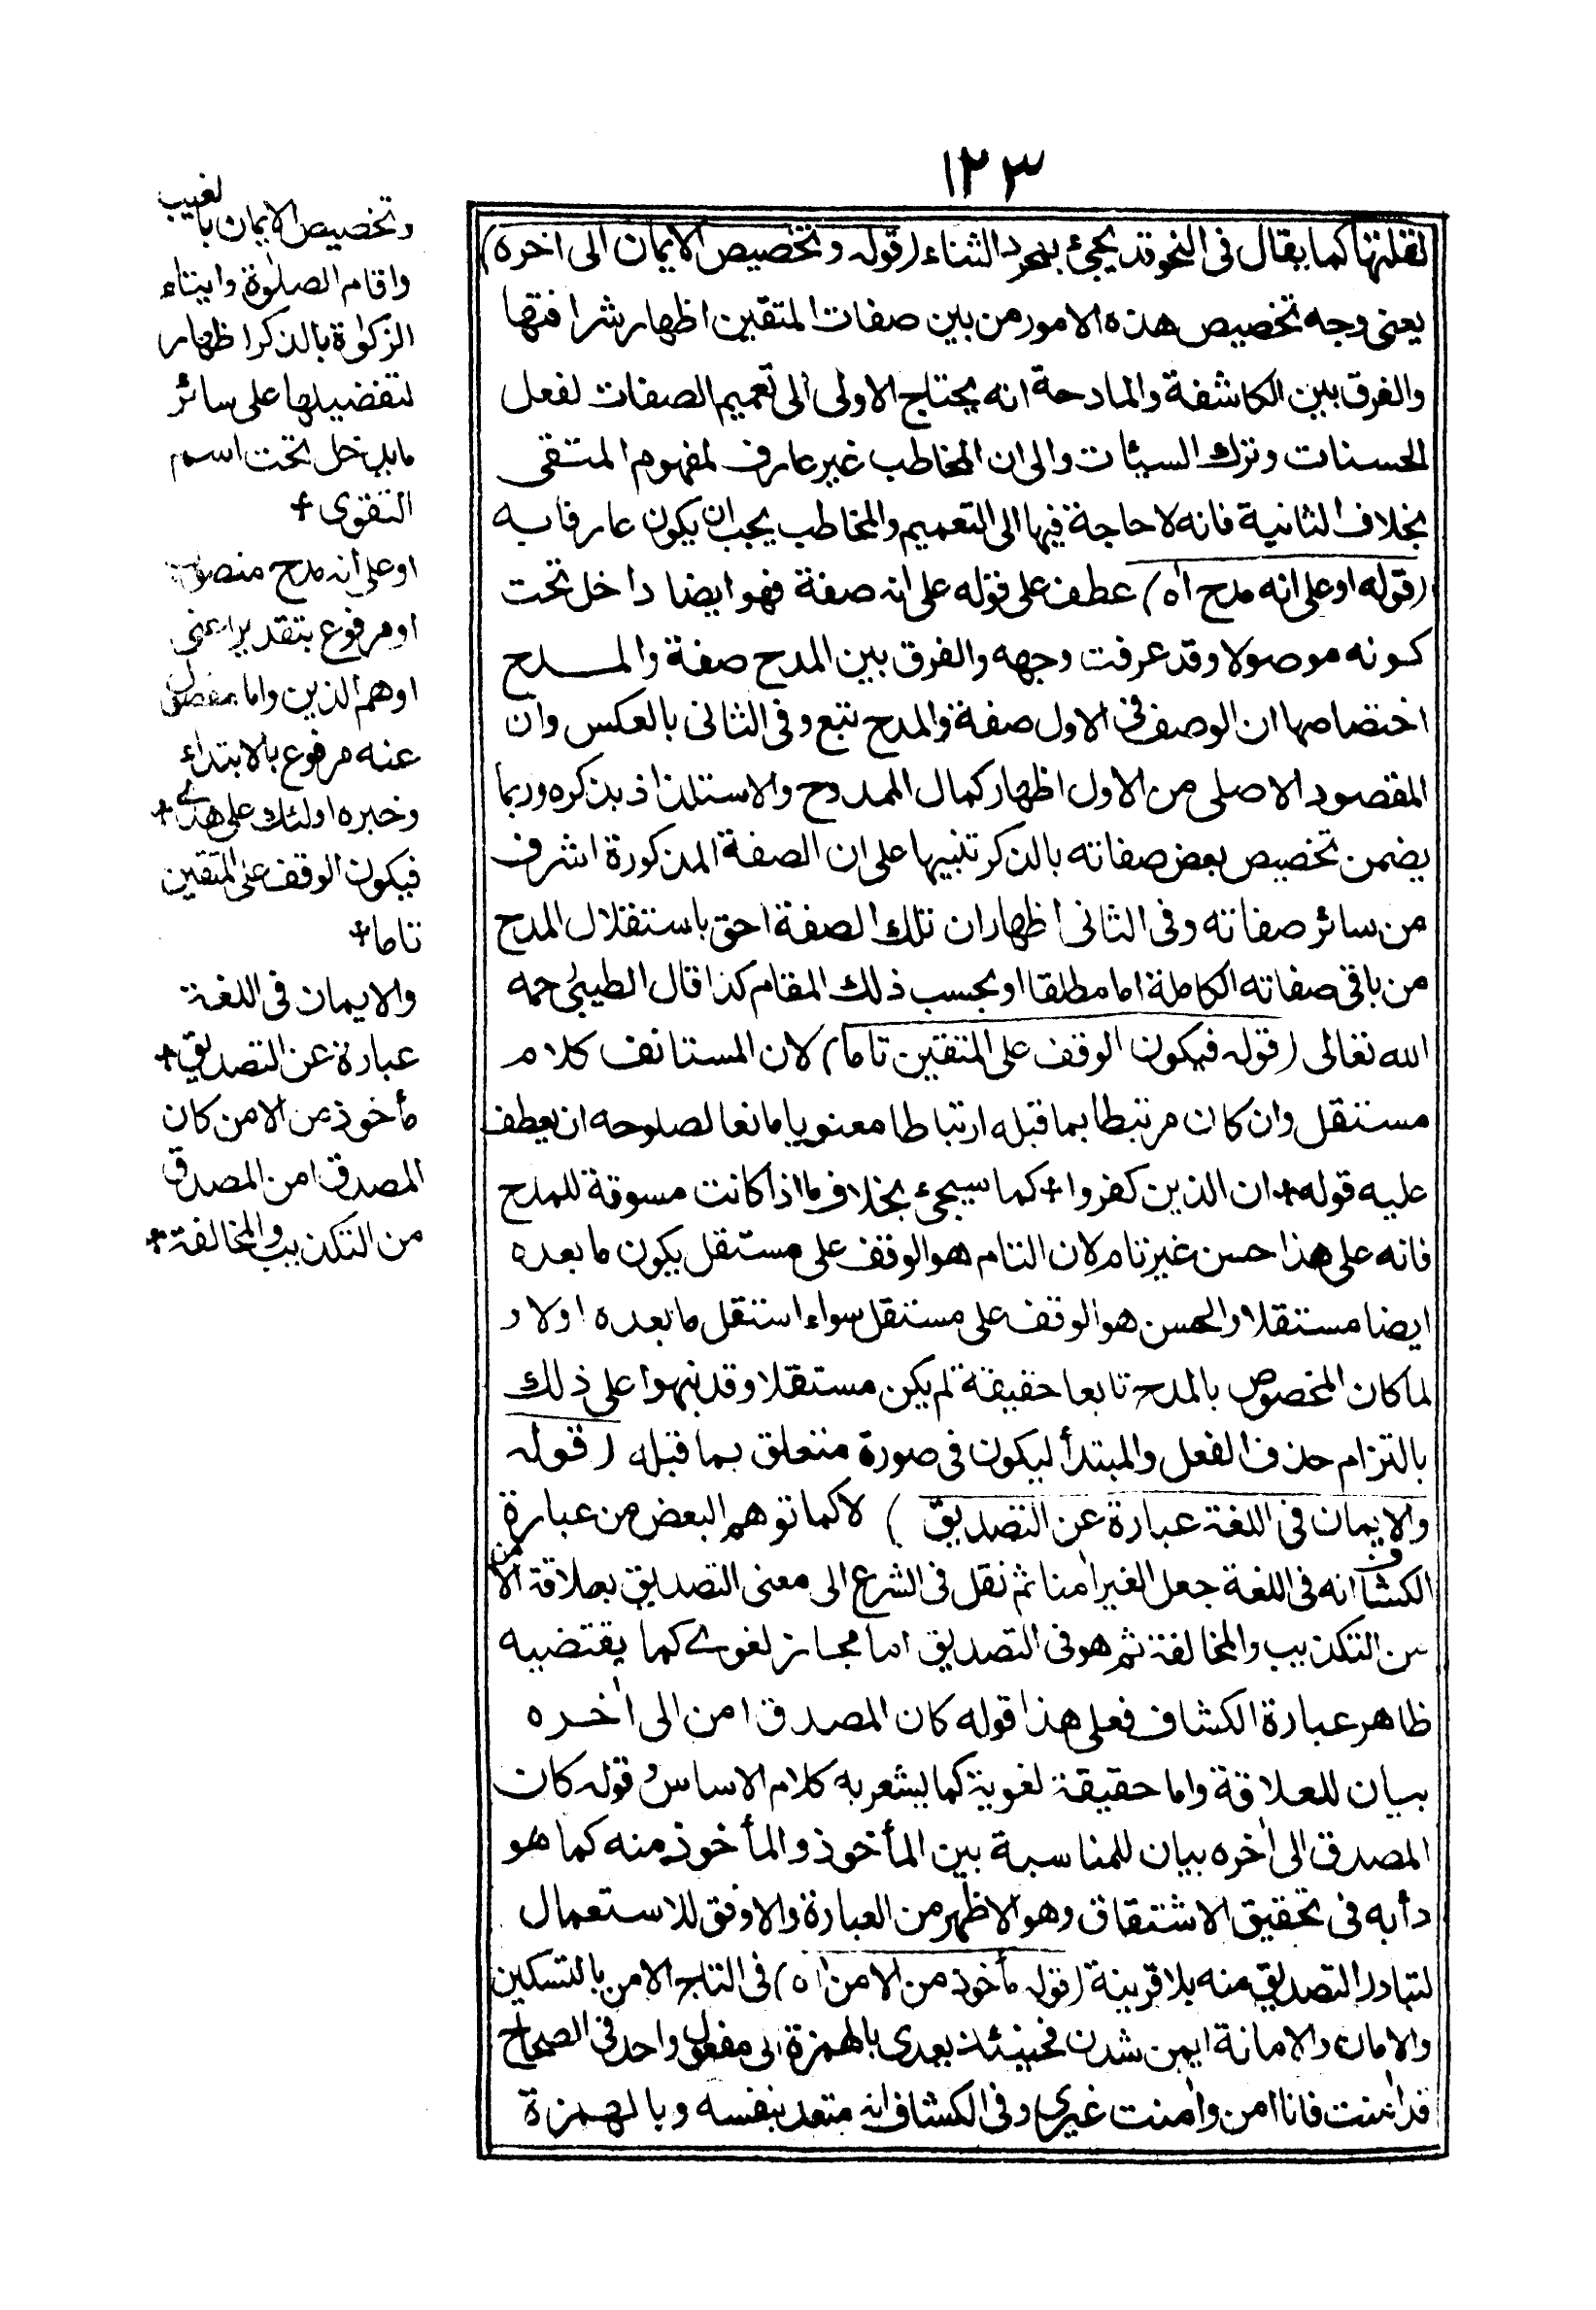 ١٢٣
لقلتها كما يقال فى النحو قد يجئ بمجرد الثناء (قوله وتخصيص الايمان الى اخره)
يعنى وجه تخصيص هذه الامور من بين صفات المتقين اظهار شرافتها
والفرق بين الكاشفة والمادحة انه يحتاج الاولى الى تعميم الصفات لفعل
الحسنات وترك السيئات والى ان المخاطب غير عارف لمفهوم المتقى
بخلاف الثانية فانه لا حاجة فيها الى التعميم والمخاطب يجب ان يكون عارفا به
(قوله او على انه مدح اه) عطف على قوله على انه صفة فهو ايضا داخل تحت
كونه موصولا وقد عرفت وجهه والفرق بين المدح صفة والمدح
اختصاصها ان الوصف فى الاول صفة والمدح تبع وفى الثانى بالعكس وان
المقصود الاصلى من الاول اظهار كمال الممدوح والاستلذاذ بذكره وربما
يضمن تخصيص بعض صفاته بالذكر تنبيها على ان الصفة المذكورة اشرف
من سائر صفاته وفى الثانى اظهار ان تلك الصفة احق باستقلال المدح
من باقى صفاته الكاملة اما مطلقا او بحسب ذلك المقام كذا قال الطيبى رحمه
الله تعالى (قوله فيكون الوقف على المتقين تاما) لان المستانف كلام
مستقل وان كان مرتبطا بما قبله ارتباطا معنويا مانعا لصلوحه ان يعطف
عليه قوله + ان الذين كفروا + كما سيجئ بخلاف ما اذا كانت مسوقة للمدح
فانه على هذا حسن غير تام لان التام هو الوقف على مستقل يكون ما بعده
ايضا مستقلا والحسن هو الوقف على مستقل سواء استقل ما بعده اولا و
لما كان المخصوص بالمدح تابعا حقيقة لم يكن مستقلا وقد نبهوا على ذلك
بالتزام حذف الفعل والمبتدأ ليكون فى صورة متعلق بما قبله (قوله
والايمان فى اللغة عبارة عن التصديق) لا كما توهم البعض من عبارة
الكشاف انه فى اللغة جعل الغير اٰمنا ثم نقل فى الشرع الى معنى التصديق بعلاقة الامن
من التكذيب والمخالفة ثم هو فى التصديق اما مجاز لغوے كما يقتضيه
ظاهر عبارة الكشاف فعلى هذا قوله كان المصدق امن الى اٰخره
بيان للعلاقة واما حقيقة لغوية كما يشعر به كلام الاساس وقوله كان
المصدق الى اٰخره بيان للمناسبة بين المأخوذ والمأخوذ منه كما هو
دأبه فى تحقيق الاشتقاق وهو الاظهر من العبارة والاوفق للاستعمال
لتبادر التصديق منه بلا قرينة (قوله مأخوذ من الامن اه) فى التاج الامن بالتسكين
والامان والامانة ايمن شدن فحينئذ يعدى بالهمزة الى مفعول واحد فى الصحاح
قد اٰمنت فانا امن واٰمنت غيرى وفى الكشاف انه متعد بنفسه وبالهمزة
وتخصيص الايمان بالغيب
واقام الصلوٰة وايتاء
الزكوٰة بالذكر اظهار
لتفضيلها على سائر
ما يدخل تحت اسم
التقوى +
او على انه مدح منصوب
او مرفوع بتقدير اعنى
او هم الذين واما مفصول
عنه مرفوع بالابتداء
وخبره اولئك على هدے +
فيكون الوقف على المتقين
تاما +
والايمان فى اللغة
عبارة عن التصديق +
مأخوذ من الامن كان
المصدق امن المصدق
من التكذيب والمخالفة +